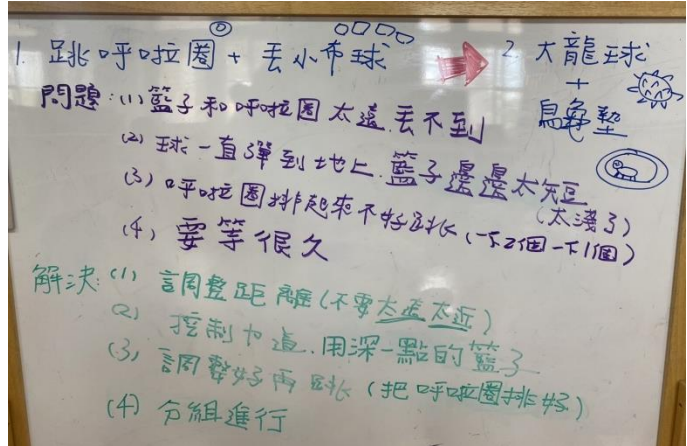 1. 跳呼啦圈 + 丟小布球
2. 大龍球
+
烏龜墊
問題:(1) 籃子和呼啦圈太遠.丟不到
(2) 球一直彈到地上.籃子邊邊太短
(太淺了)
(3) 呼啦圈排起來不好跳(一下2個一下1個)
(4) 要等很久
解決:(1) 調整距離(不要太遠太近)
(2) 控制力道.用深一點的籃子
(3) 調整好再跳(把呼啦圈排好)
(4) 分組進行